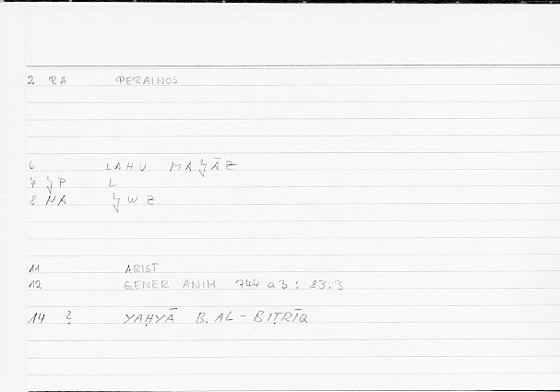 2 RA PERAINOS
6 LAHU MAǦĀZ
7 ǦP L
8 NA ǦWZ
11 ARIST
12 GENER ANIM 744 a 3 : 83.3
14 ? YAḤYĀ B. AL-BIṬRĪQ